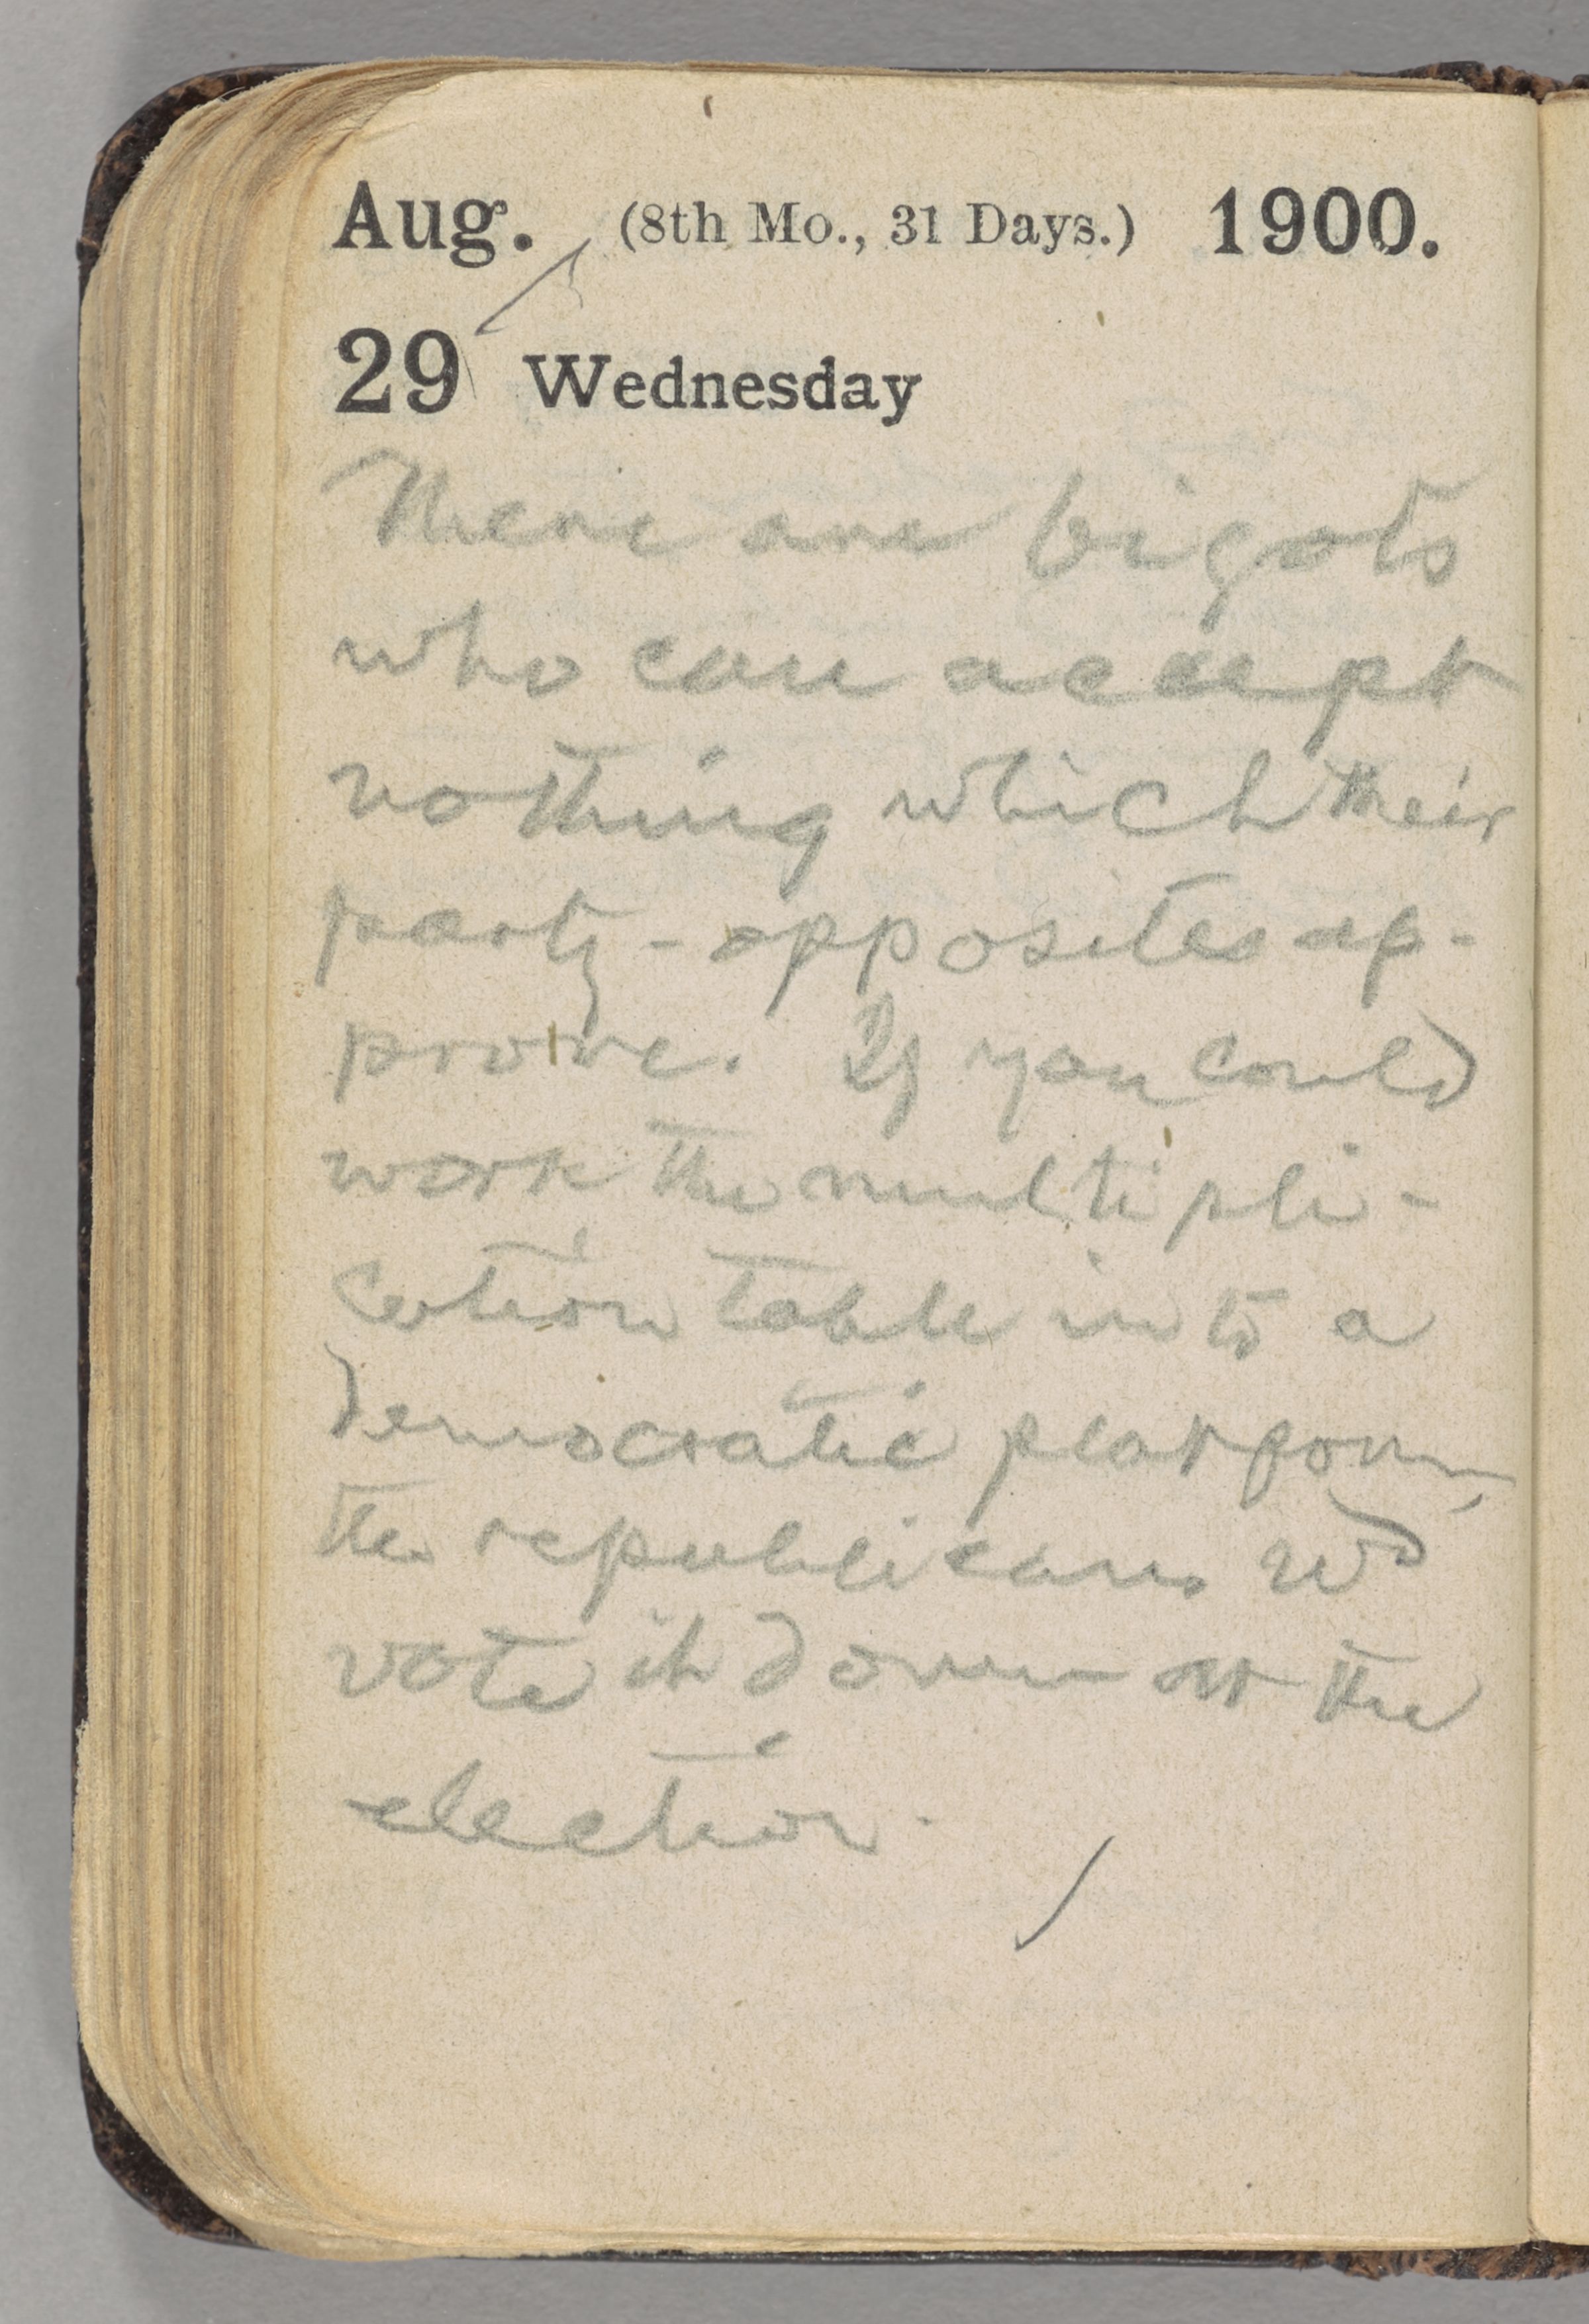 Aug. (8th Mo., 31 Days.) 1900.
29 Wednesday
There are bigots
who can accept
nothing which their
party-opposites ap-
prove. If you could
work the multipli-
cation table into a
democratic platform,
the republicans wd
vote it down at the
election.